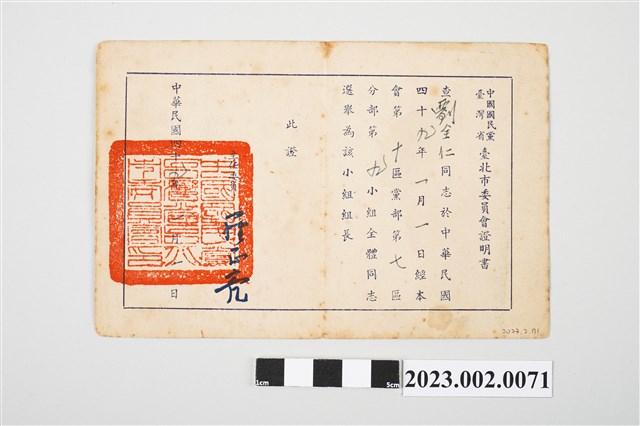 中國國民黨
臺灣省
臺北市委員會證明書
查劉全仁同志於中華民國
四十九年一月一日經本
會第十區黨部第七區
分部第九小組全體同志
選舉為該小組組長
此證
主任委員 羅正亮
中華民國四十九年一月一日
2023.2.71
1cm
5cm
2023.002.0071